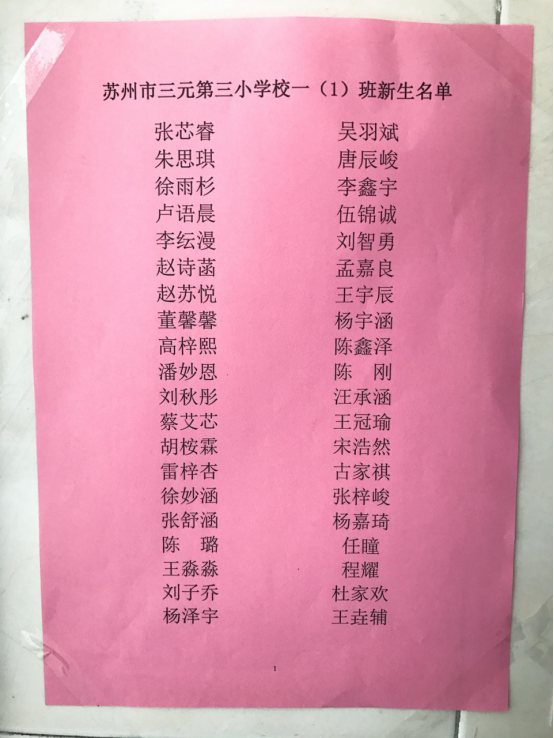 苏州市三元第三小学校一（1）班新生名单
张芯睿 吴羽斌
朱思琪 唐辰峻
徐雨杉 李鑫宇
卢语晨 伍锦诚
李纭漫 刘智勇
赵诗菡 孟嘉良
赵苏悦 王宇辰
董馨馨 杨宇涵
高梓熙 陈鑫泽
潘妙恩 陈　刚
刘秋彤 汪承涵
蔡艾芯 王冠瑜
胡桉霖 宋浩然
雷梓杏 古家祺
徐妙涵 张梓峻
张舒涵 杨嘉琦
陈　璐 任瞳
王淼淼 程耀
刘子乔 杜家欢
杨泽宇 王垚辅
1